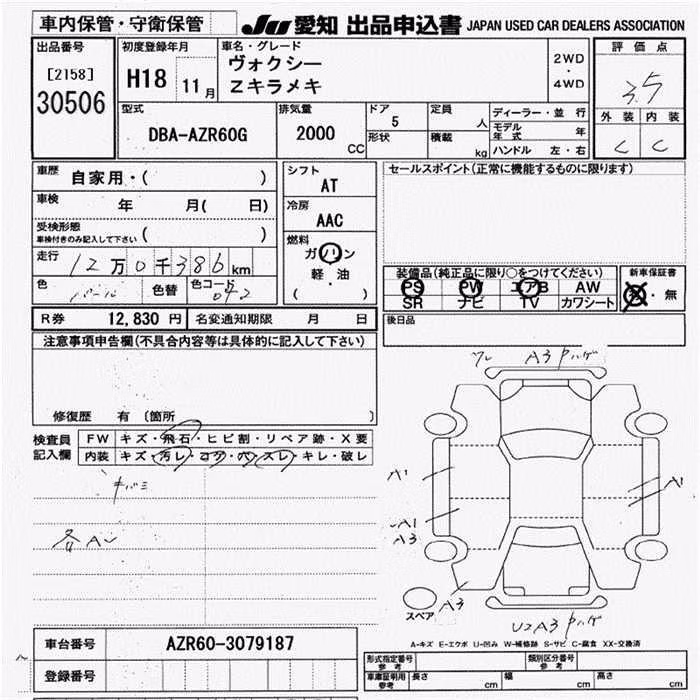 車内保管・守衛保管
JU 愛知 出品申込書 JAPAN USED CAR DEALERS ASSOCIATION
出品番号
[2158]
30506
初度登録年月
H18 11月
車名・グレード
ヴォクシー
Zキラメキ
2WD
・
4WD
評価点
3.5
外装 内装
C C
型式
DBA-AZR60G
排気量
2000
CC
ドア
5
形状
定員
人
積載
kg
ディーラー・並行
モデル年式 年
ハンドル 左・右
車歴 自家用・( )
車検 年 月( 日)
受検形態
車検付きのみ記入して下さい ( )
走行 12万0千386km
色 パール 色替 色コード 042
シフト
AT
冷房
AAC
燃料
ガソリン
軽・油
( )
セールスポイント(正常に機能するものに限ります)
装備品(純正品に限り○をつけてください)
PS PW エアB AW
SR ナビ TV カワシート
新車保証書
有・無
後日品
R券 12,830 円 名変通知期限 月 日
注意事項申告欄(不具合内容等は具体的に記入して下さい)
修復歴 有 〔箇所 〕
検査員
記入欄
FW キズ・飛石・ヒビ割・リペア跡・X要
内装 キズ・汚レ・コゲ・ベンスレ・キレ・破レ
キバミ
各A
A3
A1
A1
A1
A3
A3
U2A3
スペア
A-キズ E-エクボ U-凹み W-補修跡 S-サビ C-腐食 XX-交換済
車台番号 AZR60-3079187
登録番号
形式指定番号
参考
類別区分番号
参考
車庫証明用
参考
長さ cm 幅 cm 高さ cm